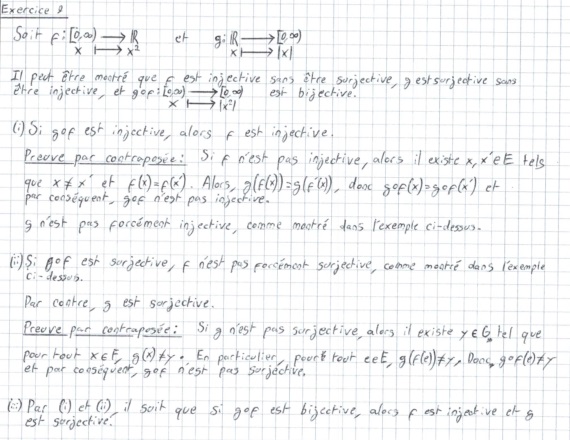 Exercice 9
Soit f: [0,∞) → ℝ et g: ℝ → [0,∞)
x ↦ x² x ↦ |x|
Il peut être montré que f est injective sans être surjective, g est surjective sans
être injective, et g∘f: [0,∞) → [0,∞) est bijective.
x ↦ |x²|
(i) Si g∘f est injective, alors f est injective.
Preuve par contraposée: Si f n'est pas injective, alors il existe x, x' ∈ E tels
que x ≠ x' et f(x)=f(x'). Alors, g(f(x))=g(f(x')), donc g∘f(x)=g∘f(x') et
par conséquent, g∘f n'est pas injective.
g n'est pas forcément injective, comme montré dans l'exemple ci-dessus.
(ii) Si g∘f est surjective, f n'est pas forcément surjective, comme montré dans l'exemple
ci-dessus.
Par contre, g est surjective.
Preuve par contraposée: Si g n'est pas surjective, alors il existe y ∈ G, tel que
pour tout x ∈ F, g(x) ≠ y. En particulier, pour tout e ∈ E, g(f(e)) ≠ y. Donc, g∘f(e) ≠ y
et par conséquent, g∘f n'est pas surjective.
(iii) Par (i) et (ii), il suit que si g∘f est bijective, alors f est injective et g
est surjective.